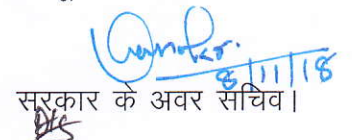 8/11/18
सरकार के अवर सचिव।